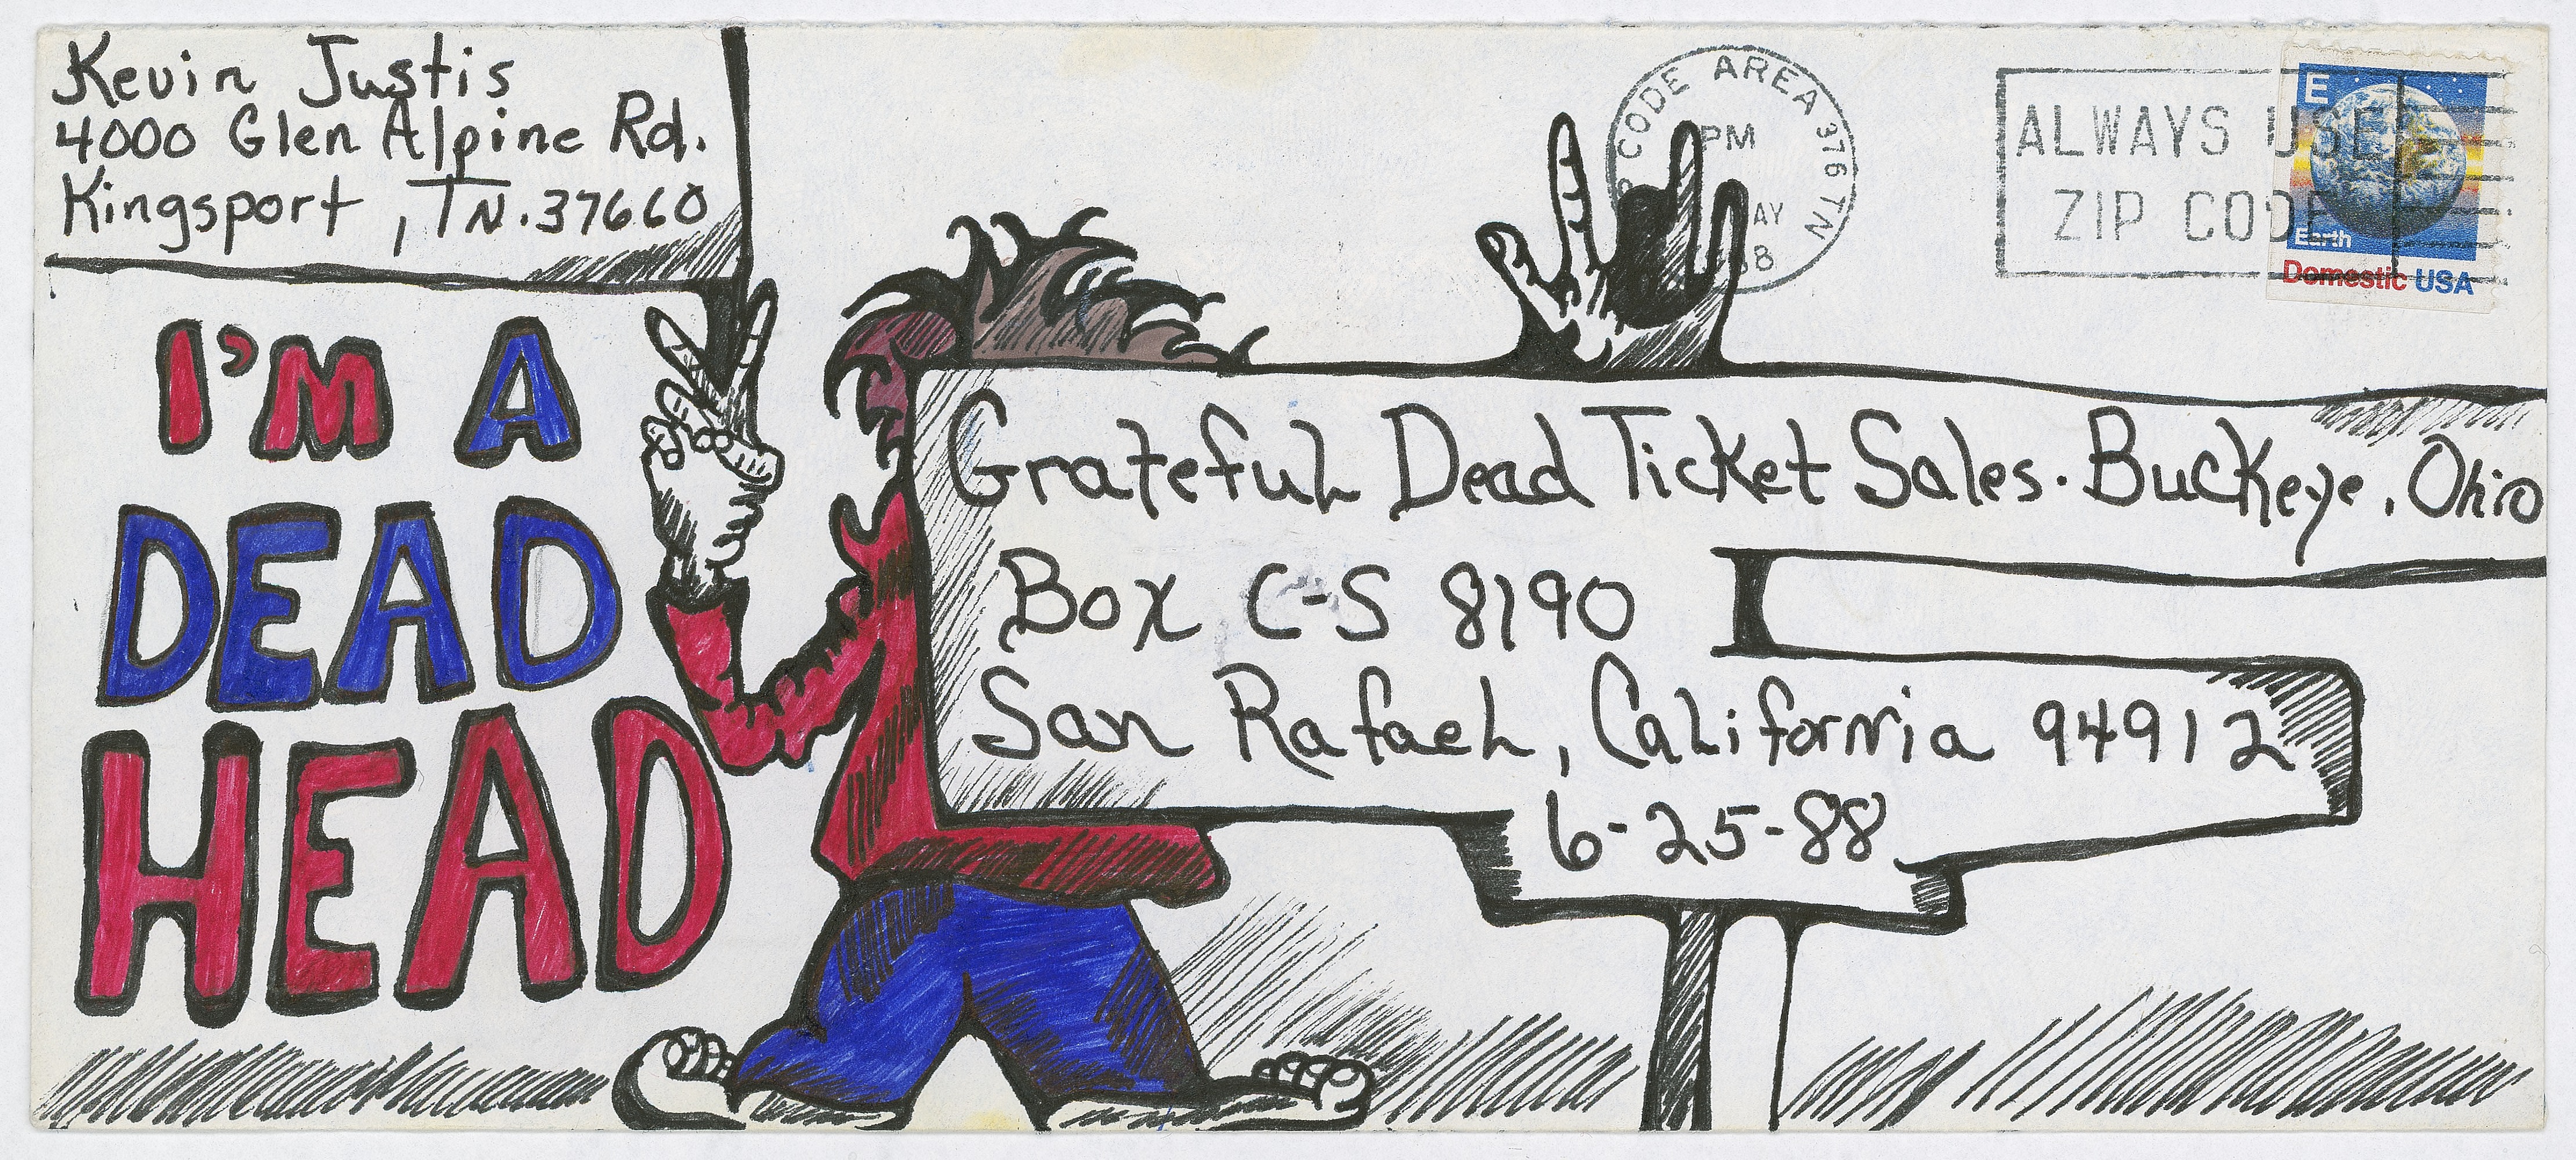 Kevin Justis
4000 Glen Alpine Rd.
Kingsport, TN. 37660
CODE AREA 376 TN
PM
AY
ALWAYS USE
ZIP CODE
E
Earth
Domestic USA
I'M A
DEAD
HEAD
Grateful Dead Ticket Sales. Buckeye, Ohio
Box C-S 8190
San Rafael, California 94912
6-25-88